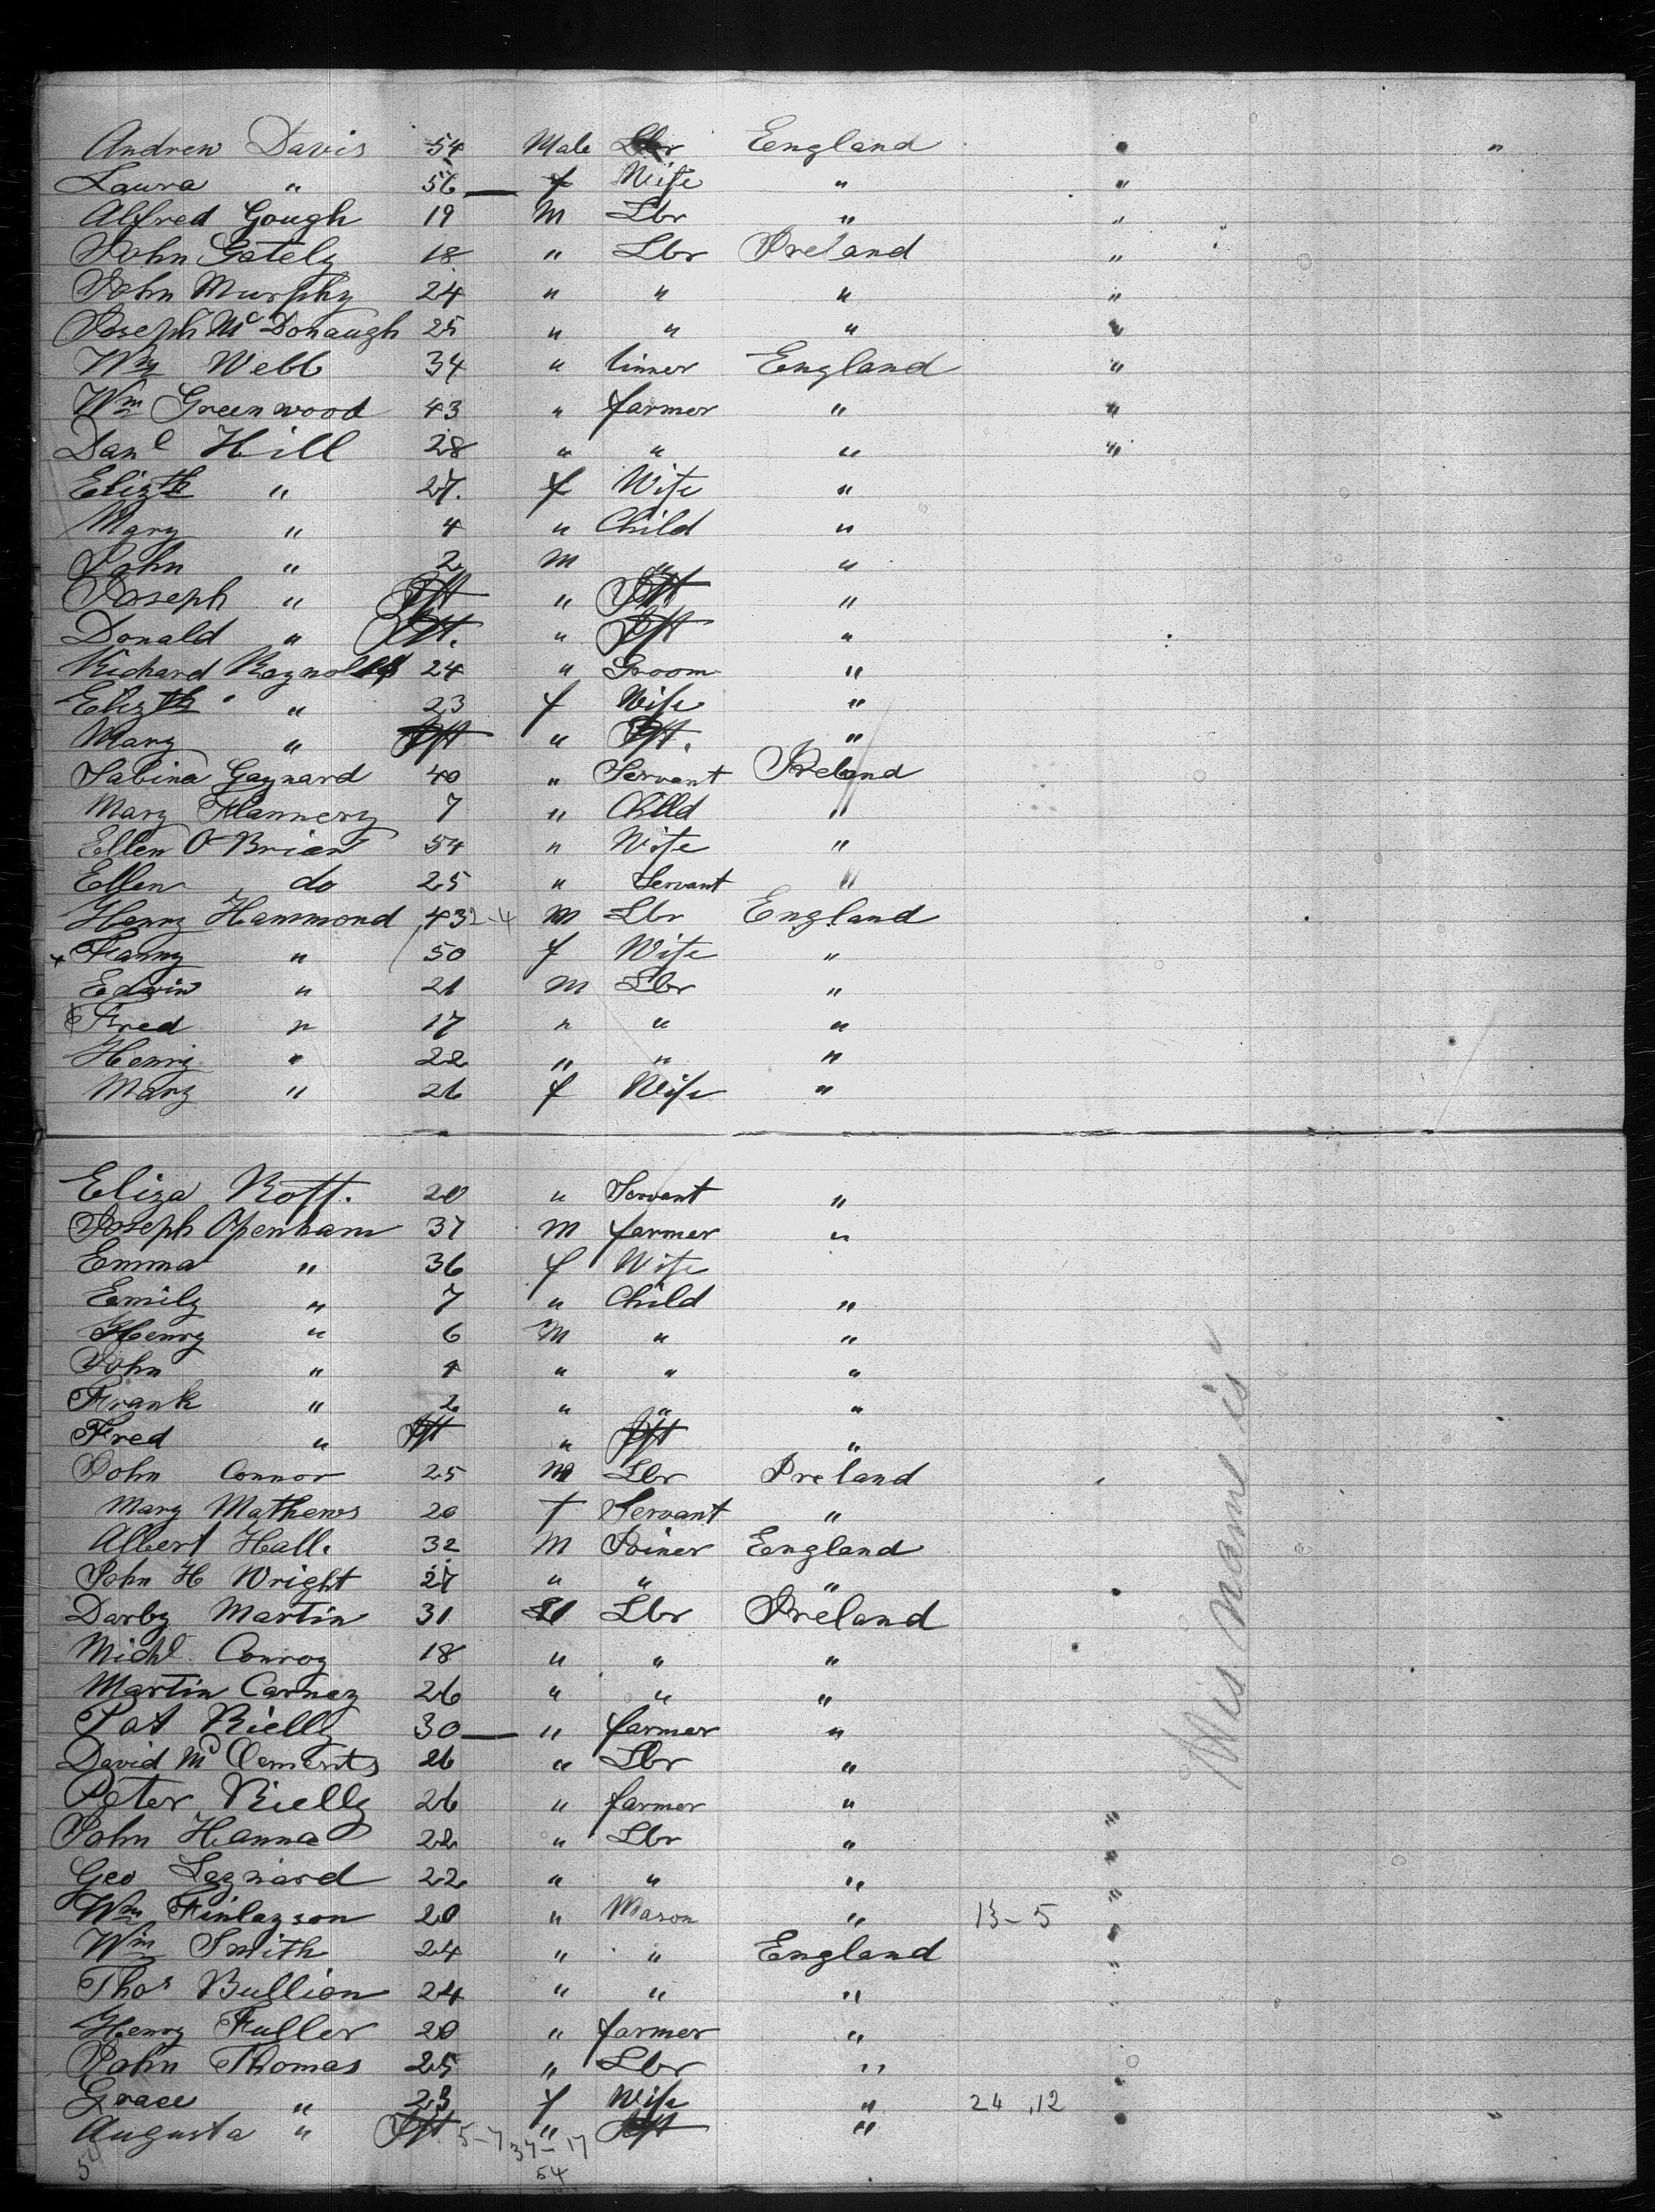 Andrew Davis 54 Male Lbr Eengland " "
Laura " 56 — f Wife " "
Alfred Gough 19 M Lbr " "
John Gately 18 " Lbr Ireland "
John Murphy 24 " " " "
Joseph Mc Donaugh 25 " " " "
Wm Webb 34 " tinner England "
Wm Greenwood 43 " farmer " "
Danl Hill 28 " " " "
Elizth " 27. f Wife "
Mary " 4 " Child "
John " 2 M " "
Joseph " Ift " Ift "
Donald " Ift. " Ift "
Richard Reynolds 24 " Groom "
Elizth " 23 f Wife "
Mary " Ift " Ift. "
Sabina Gaynard 40 " Servant Ireland
Mary Flannery 7 " Child "
Ellen O'Brian 54 " Wife "
Ellen do 25 " Servant "
Henry Hammond 43 2-4 M Lbr England
x Fanny " 50 f Wife "
Edwin " 21 M Lbr "
Fred " 17 " " "
Henry " 22 " " "
Mary " 26 f Wife "
Eliza Roff. 20 " Servant "
Joseph Openham 37 M farmer "
Emma " 36 f Wife
Emily " 7 " Child "
Henry " 6 M " "
John " 4 " " "
Frank " 2 " " "
Fred " Ift " Ift "
John Connor 25 M Lbr Ireland
Mary Mathews 20 f Servant "
Albert Hall. 32 M Joiner Eengland
John H Wright 27 " " "
Darby Martin 31 M Lbr Ireland
Michl. Conroy 18 " " "
Martin Carney 26 " " "
Pat Rielly 30 — " farmer "
David Mc Clements 26 " Lbr "
Peter Rielly 26 " farmer "
John Hanna 22 " Lbr " "
Geo Laynard 22 " " " "
Wm Finlayson 20 " Mason " 13-5 "
Wm Smith 24 " " England "
Thos Bullion 24 " " " "
Henry Fuller 20 " farmer "
John Thomas 25 " Lbr " "
Grace " 23 f Wife " 24 .12 "
Augusta " Ift " Ift " "
5-7 37-17
54 54
His name is